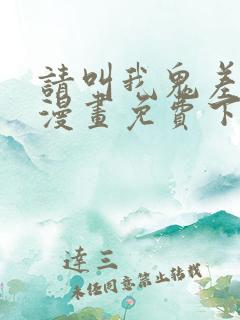 請叫我鬼差
漫畫免費下
達三
未經同意禁止轉載